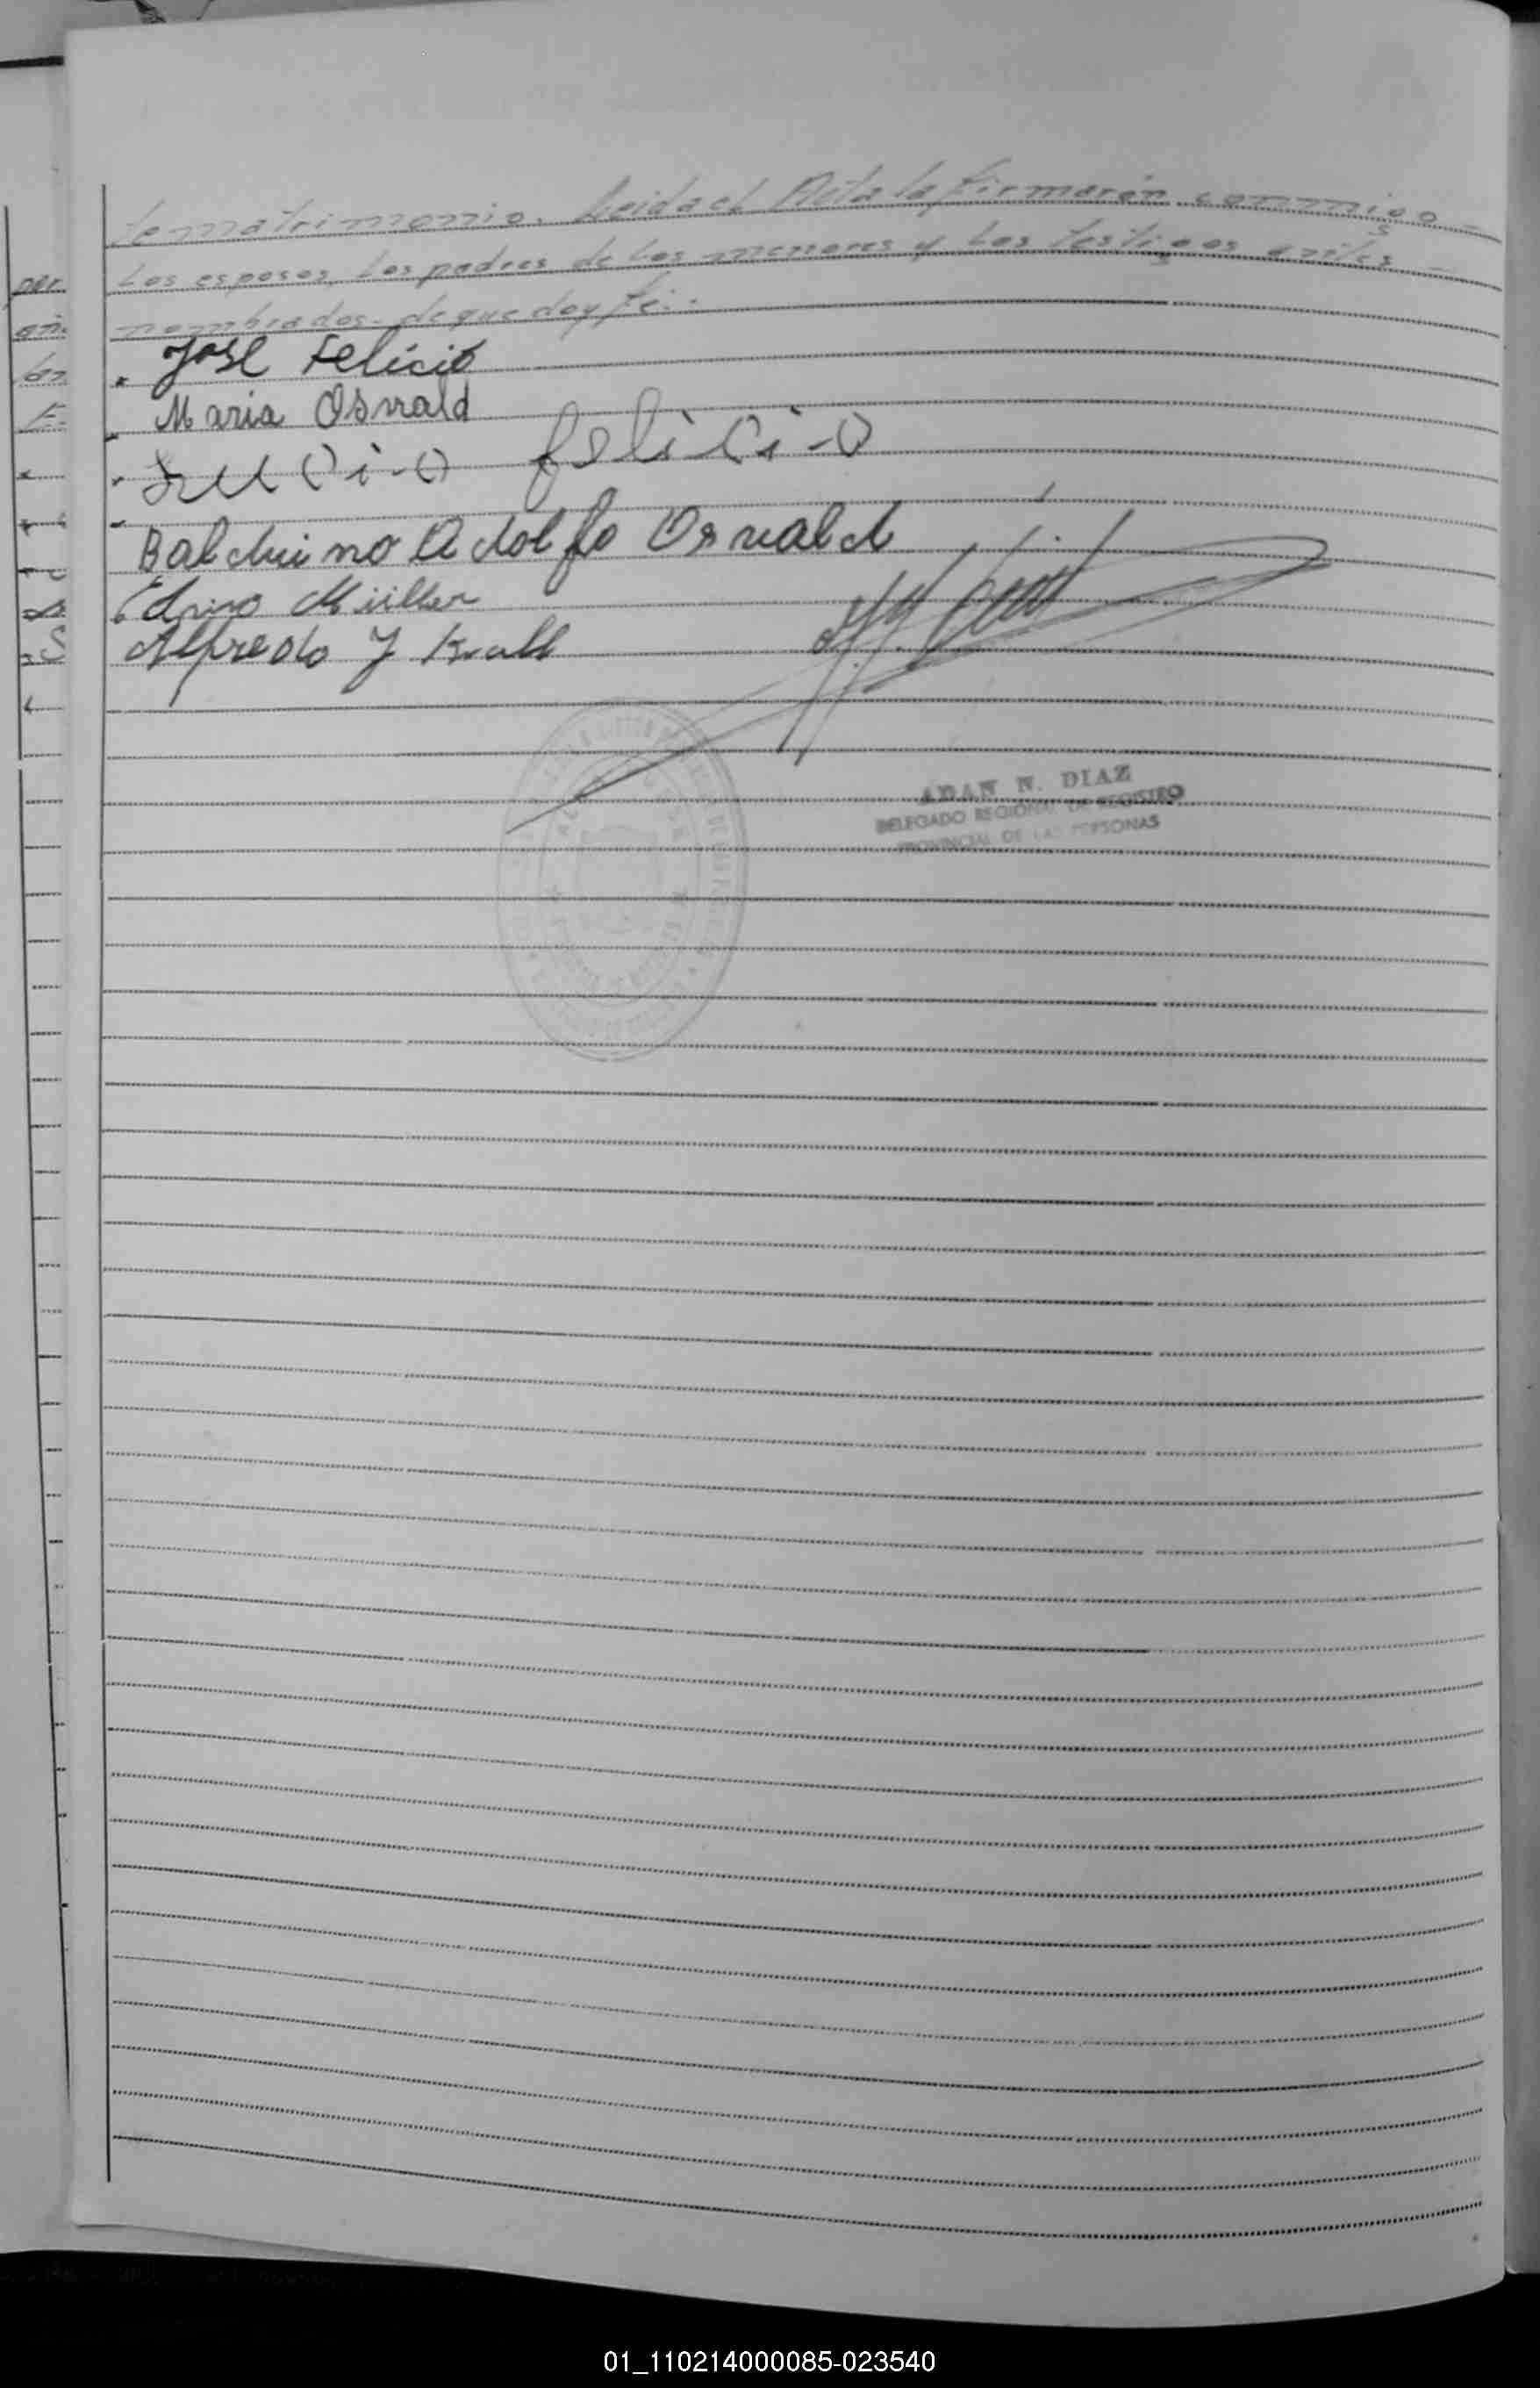 te matrimonio. Leida el Acta la firmarán conmigo -
Los esposos, Los padres de los menores y Los testigos antes -
nombrados. de que doy fé.-
José Felicio
Maria Osvald
Lucio Felicio
Balduino Adolfo Osvald
Müller
Alfredo J Krall
ADAN N. DIAZ
DELEGADO REGIONAL DE REGISTRO
PROVINCIAL DE LAS PERSONAS
01_110214000085-023540